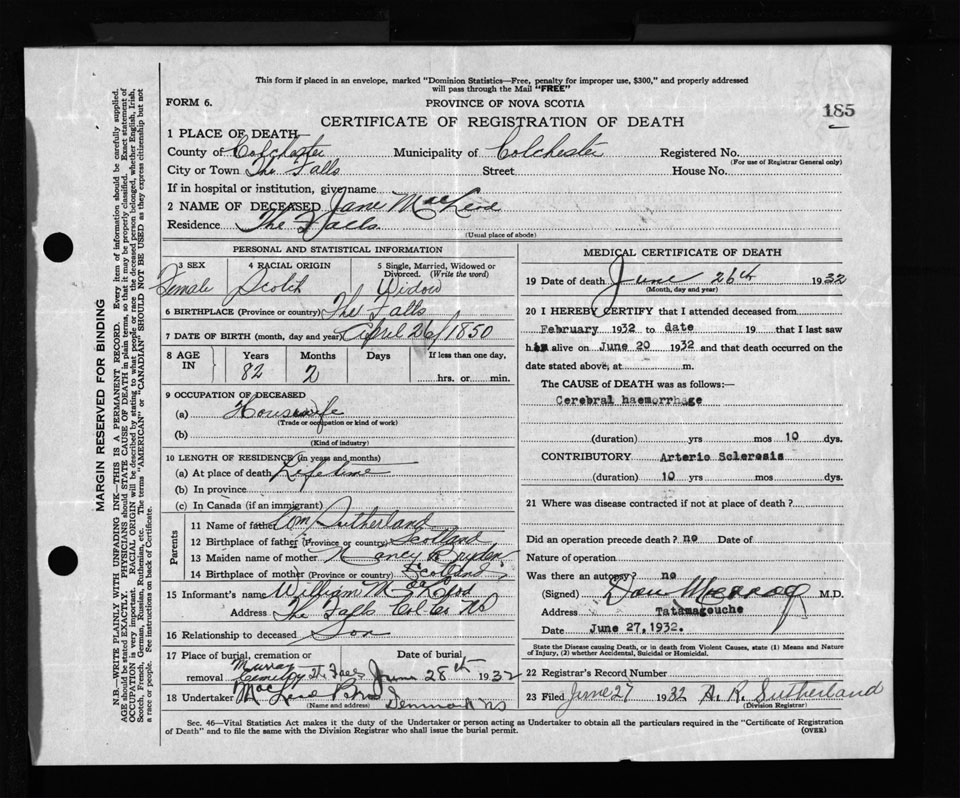 This form if placed in an envelope, marked "Dominion Statistics—Free, penalty for improper use, $300," and properly addressed
will pass through the Mail "FREE"
FORM 6.
PROVINCE OF NOVA SCOTIA
185
CERTIFICATE OF REGISTRATION OF DEATH
1 PLACE OF DEATH
County of Colchester Municipality of Colchester Registered No.
(For use of Registrar General only)
City or Town The Falls Street House No.
If in hospital or institution, give name
2 NAME OF DECEASED Jane MacLeod
Residence The Falls
(Usual place of abode)
PERSONAL AND STATISTICAL INFORMATION
3 SEX 4 RACIAL ORIGIN 5 Single, Married, Widowed or
Divorced. (Write the word)
Female Scotch Widow
6 BIRTHPLACE (Province or country) The Falls
7 DATE OF BIRTH (month, day and year) April 26/1850
8 AGE IN Years Months Days If less than one day,
82 2 hrs. or min.
9 OCCUPATION OF DECEASED
(a) Housewife
(Trade or occupation or kind of work)
(b)
(Kind of industry)
10 LENGTH OF RESIDENCE (in years and months)
(a) At place of death Lifetime
(b) In province
(c) In Canada (if an immigrant)
Parents
11 Name of father Sutherland
12 Birthplace of father (Province or country) Scotland
13 Maiden name of mother Nancy Bryden
14 Birthplace of mother (Province or country) Scotland
15 Informant's name William M
Address The Falls Col. Co. NS
16 Relationship to deceased Son
17 Place of burial, cremation or Date of burial
removal Murray Cemetery June 28th 1932
18 Undertaker MacLeod Bros Denmark NS
(Name and address)
MEDICAL CERTIFICATE OF DEATH
19 Date of death June 26th 1932
(Month, day and year)
20 I HEREBY CERTIFY that I attended deceased from
February 1932 to date 19 that I last saw
h alive on June 20 1932 and that death occurred on the
date stated above, at m.
The CAUSE of DEATH was as follows:—
Cerebral haemorrhage
(duration) yrs mos 10 dys.
CONTRIBUTORY Arterio Scleresis
(duration) 10 yrs mos dys.
21 Where was disease contracted if not at place of death?
Did an operation precede death? no Date of
Nature of operation
Was there an autopsy? no
(Signed) Dan M.D.
Address Tatamagouche
Date June 27, 1932.
State the Disease causing Death, or in death from Violent Causes, state (1) Means and Nature
of Injury, (2) whether Accidental, Suicidal or Homicidal.
22 Registrar's Record Number
23 Filed June 27 1932 A. R. Sutherland
(Division Registrar)
Sec. 46—Vital Statistics Act makes it the duty of the Undertaker or person acting as Undertaker to obtain all the particulars required in the "Certificate of Registration
of Death" and to file the same with the Division Registrar who shall issue the burial permit.
(OVER)
MARGIN RESERVED FOR BINDING
N.B.—WRITE PLAINLY WITH UNFADING INK—THIS IS A PERMANENT RECORD. Every item of information should be carefully supplied.
AGE should be stated EXACTLY. PHYSICIANS should STATE CAUSE OF DEATH in plain terms, so that it may be properly classified. Exact statement of
OCCUPATION is very important. RACIAL ORIGIN will be described by stating to what people or race the deceased person belonged, whether English, Irish,
Scotch, French, German, Russian, Ruthenian, etc. The terms "AMERICAN" or "CANADIAN" SHOULD NOT BE USED as they express citizenship but not
a race or people. See instructions on back of Certificate.